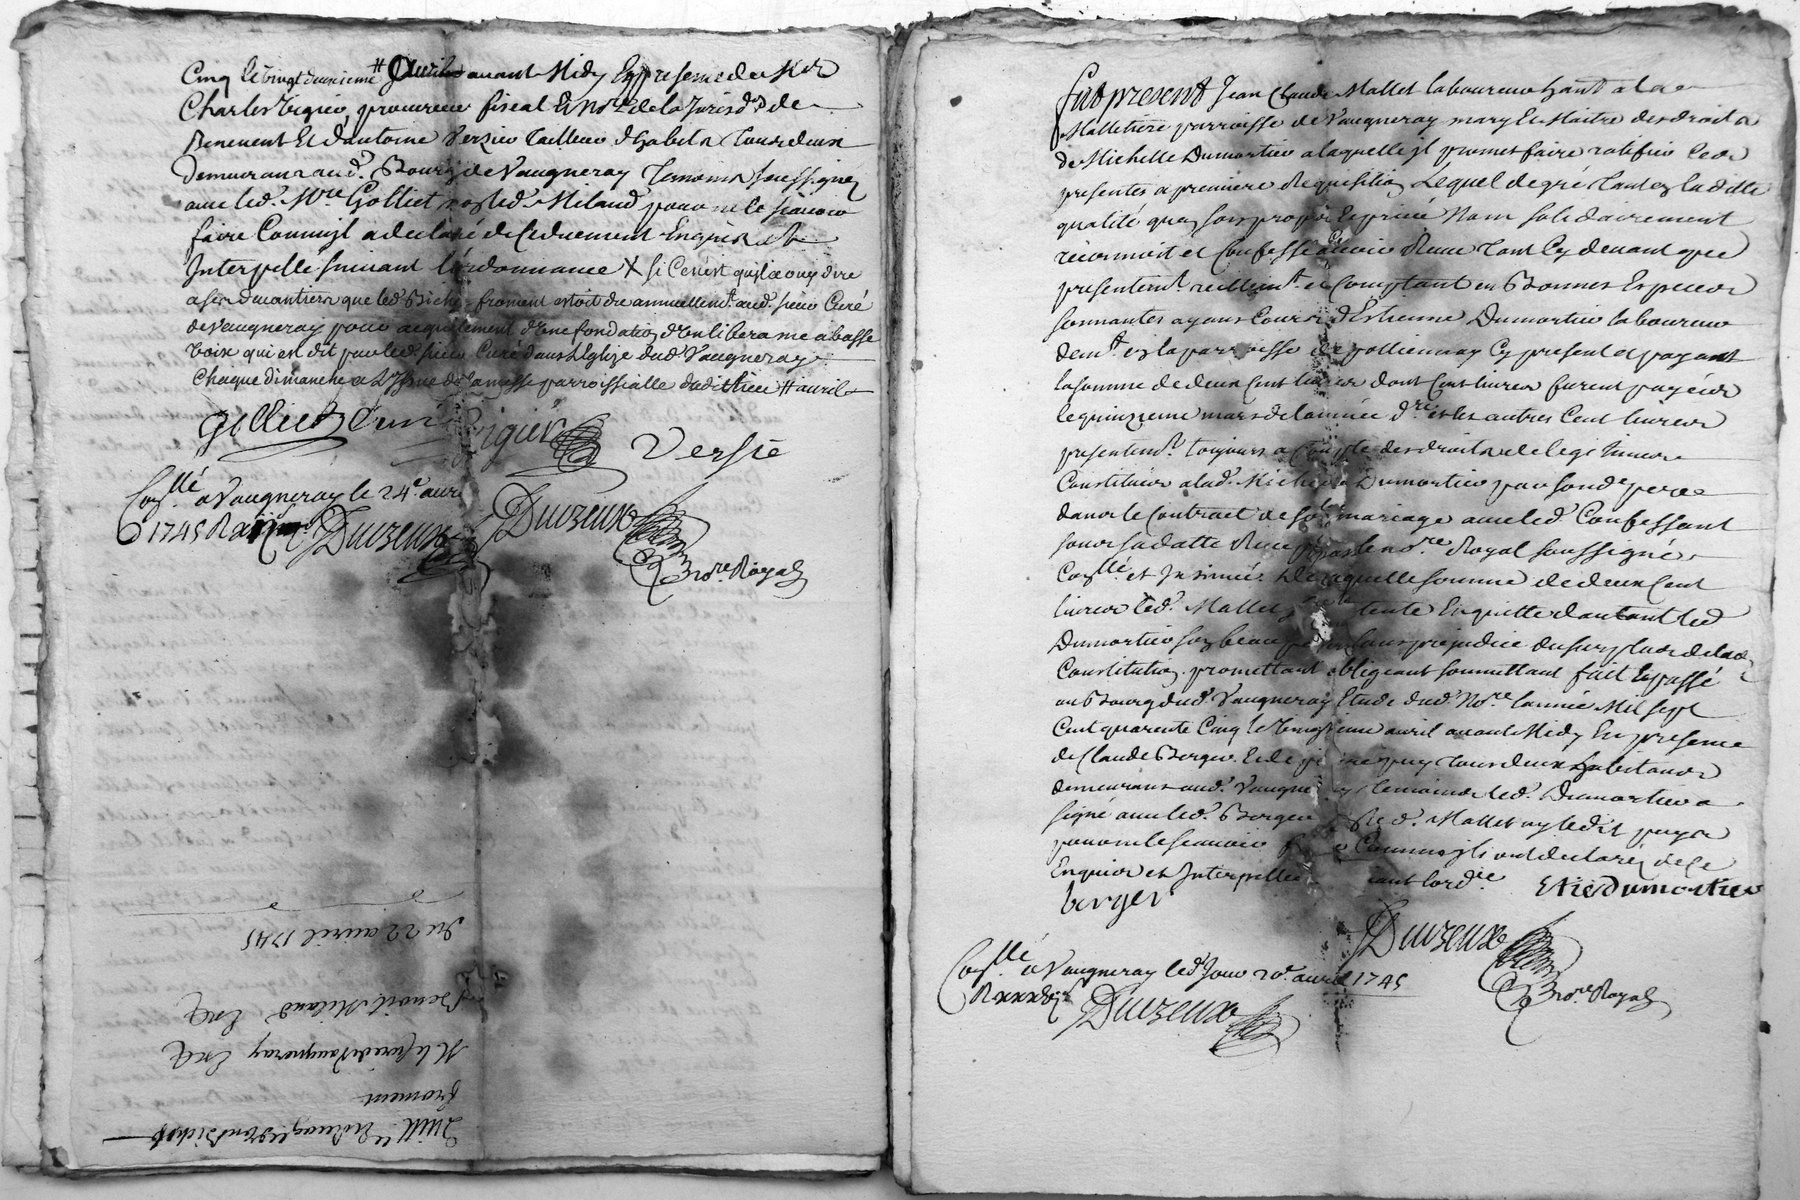 Cinq le vingt deuxieme # avant Midy En presence de Mtre
Charles Vigier, procureur fiscal Et No.re de la Jurisd.on de
Et d'antoine Versie Tailleur d'habits Tous deux
demeurans aud. Bourg de Vaugneray Temoins soussignez
avec led. M.re Golliet non led. Milaud pour ne le sçavoir
faire Comm'jl a declaré de ce duement Enquis et
Interpellé suivant l'ordonnance X si Cen'est qu'jl a ouy dire
a ses devantiers que led. Bichet froment estoit du annuellem.t aud. sieur Curé
de Vaugneray pour acquittement d'une fondation d'un libera me a basse
voix qui est dit par led. sieur Curé dans L'Eglize dud. Vaugneray
Chaque dimanche a L'yssue de la messe parroissialle dudit lieu # avril
Golliet Curé Vigier Versie
Con.llé a Vaugneray le 24e avril
1745 Duvzeux Duvzeux
No.re Royal
Du 22 avril 1745
Benoit Milaud
M. le Curé de Vaugneray
froment
Quitt.ce
fut present Jean Claude Mallet laboureur hant a la
Malletiere parroisse de Vaugneray mary Et Maitre des droits
de Michelle Dumortier a laquelle jl promet faire ratiffier Ces
presentes a premiere Requisition, Lequel de gré Tant en la ditte
qualité qu'en son propre Et privé Nom solidairement
reconnoit et Confesse avoir Reçu Tant Cy devant que
presentem.t reellem.t et Comptant en Bonnes Especes
sonnantes ayans Cours d'Estienne Dumortier laboureur
dem.t en la parroisse de pollionnay Cy present et payant
la somme de deux Cent livres dont Cent livres furent payées
le quinzieme mars de l'année d.re et les autres Cent livres
presentem.t toujours a Compte des droits de legitimes
Constitués a lad. Michelle Dumortier par son d. pere
dans le Contract de so. mariage avec led. Confessant
sous sa datte Reçu par le no.re Royal soussigné
Con.llé et Insinué De laquelle somme de deux Cent
livres led. Mallet Contente Enquitte d'autant led.
Dumortier son beau sans prejudice du surplus de lad.
Constitution, promettant obligeant soumettant fait Et passé
au Bourg dud. Vaugneray Etude dud. No.re l'année Mil sept
Cent quarente Cinq le avril avant Midy En presence
de Claude Berger Et de puy Tous deux habitans
demeurans aud. Vaugneray temoins led. Dumortier a
signé avec led. Berger led. Mallet ny ledit puy
pour ne le sçavoir faire Comm'jls ont declaré de Ce
Enquis et Interpellés suivant l'ord.ce
berger Etie Dumortier
Duvzeux
No.re Royal
Con.llé a Vaugneray led. Jour 20e avril 1745
Duvzeux